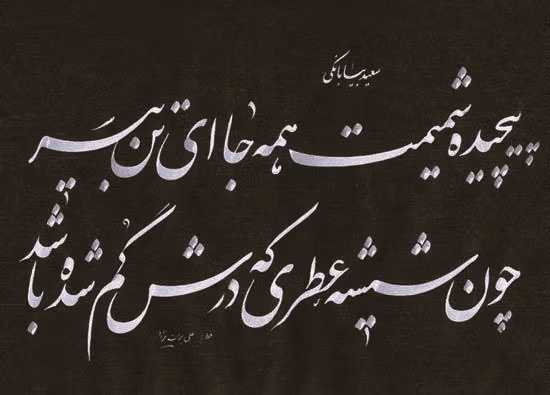 سعید بیابانکی
پیچیده شمیمت همه جا ای تن بی سر
چون شیشه عطری که درش گم شده باشد
خط: علی